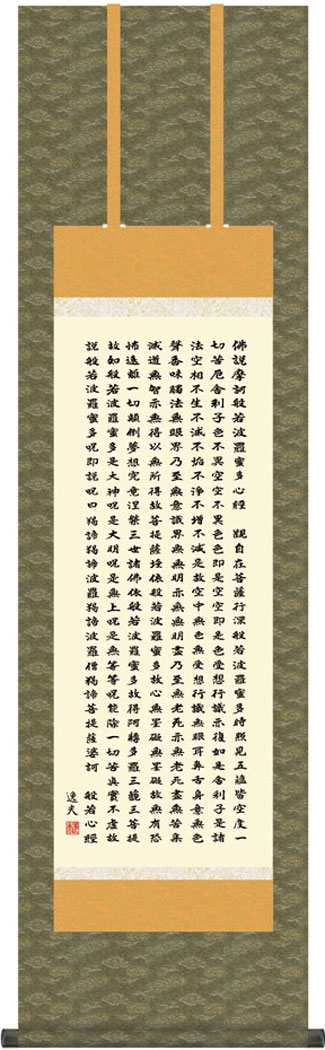 佛説摩訶般若波羅蜜多心經 觀自在菩薩行深般若波羅蜜多時照見五蘊皆空度一
切苦厄舍利子色不異空空不異色色即是空空即是色受想行識亦復如是舍利子是諸
法空相不生不滅不垢不淨不增不減是故空中無色無受想行識無眼耳鼻舌身意無色
聲香味觸法無眼界乃至無意識界無無明亦無無明盡乃至無老死亦無老死盡無苦集
滅道無智亦無得以無所得故菩提薩埵依般若波羅蜜多故心無罣礙無罣礙故無有恐
怖遠離一切顛倒夢想究竟涅槃三世諸佛依般若波羅蜜多故得阿耨多羅三藐三菩提
故知般若波羅蜜多是大神呪是大明呪是無上呪是無等等呪能除一切苦真實不虚故
説般若波羅蜜多呪即説呪曰羯諦羯諦波羅羯諦波羅僧羯諦菩提薩婆訶 般若心經
逸夫